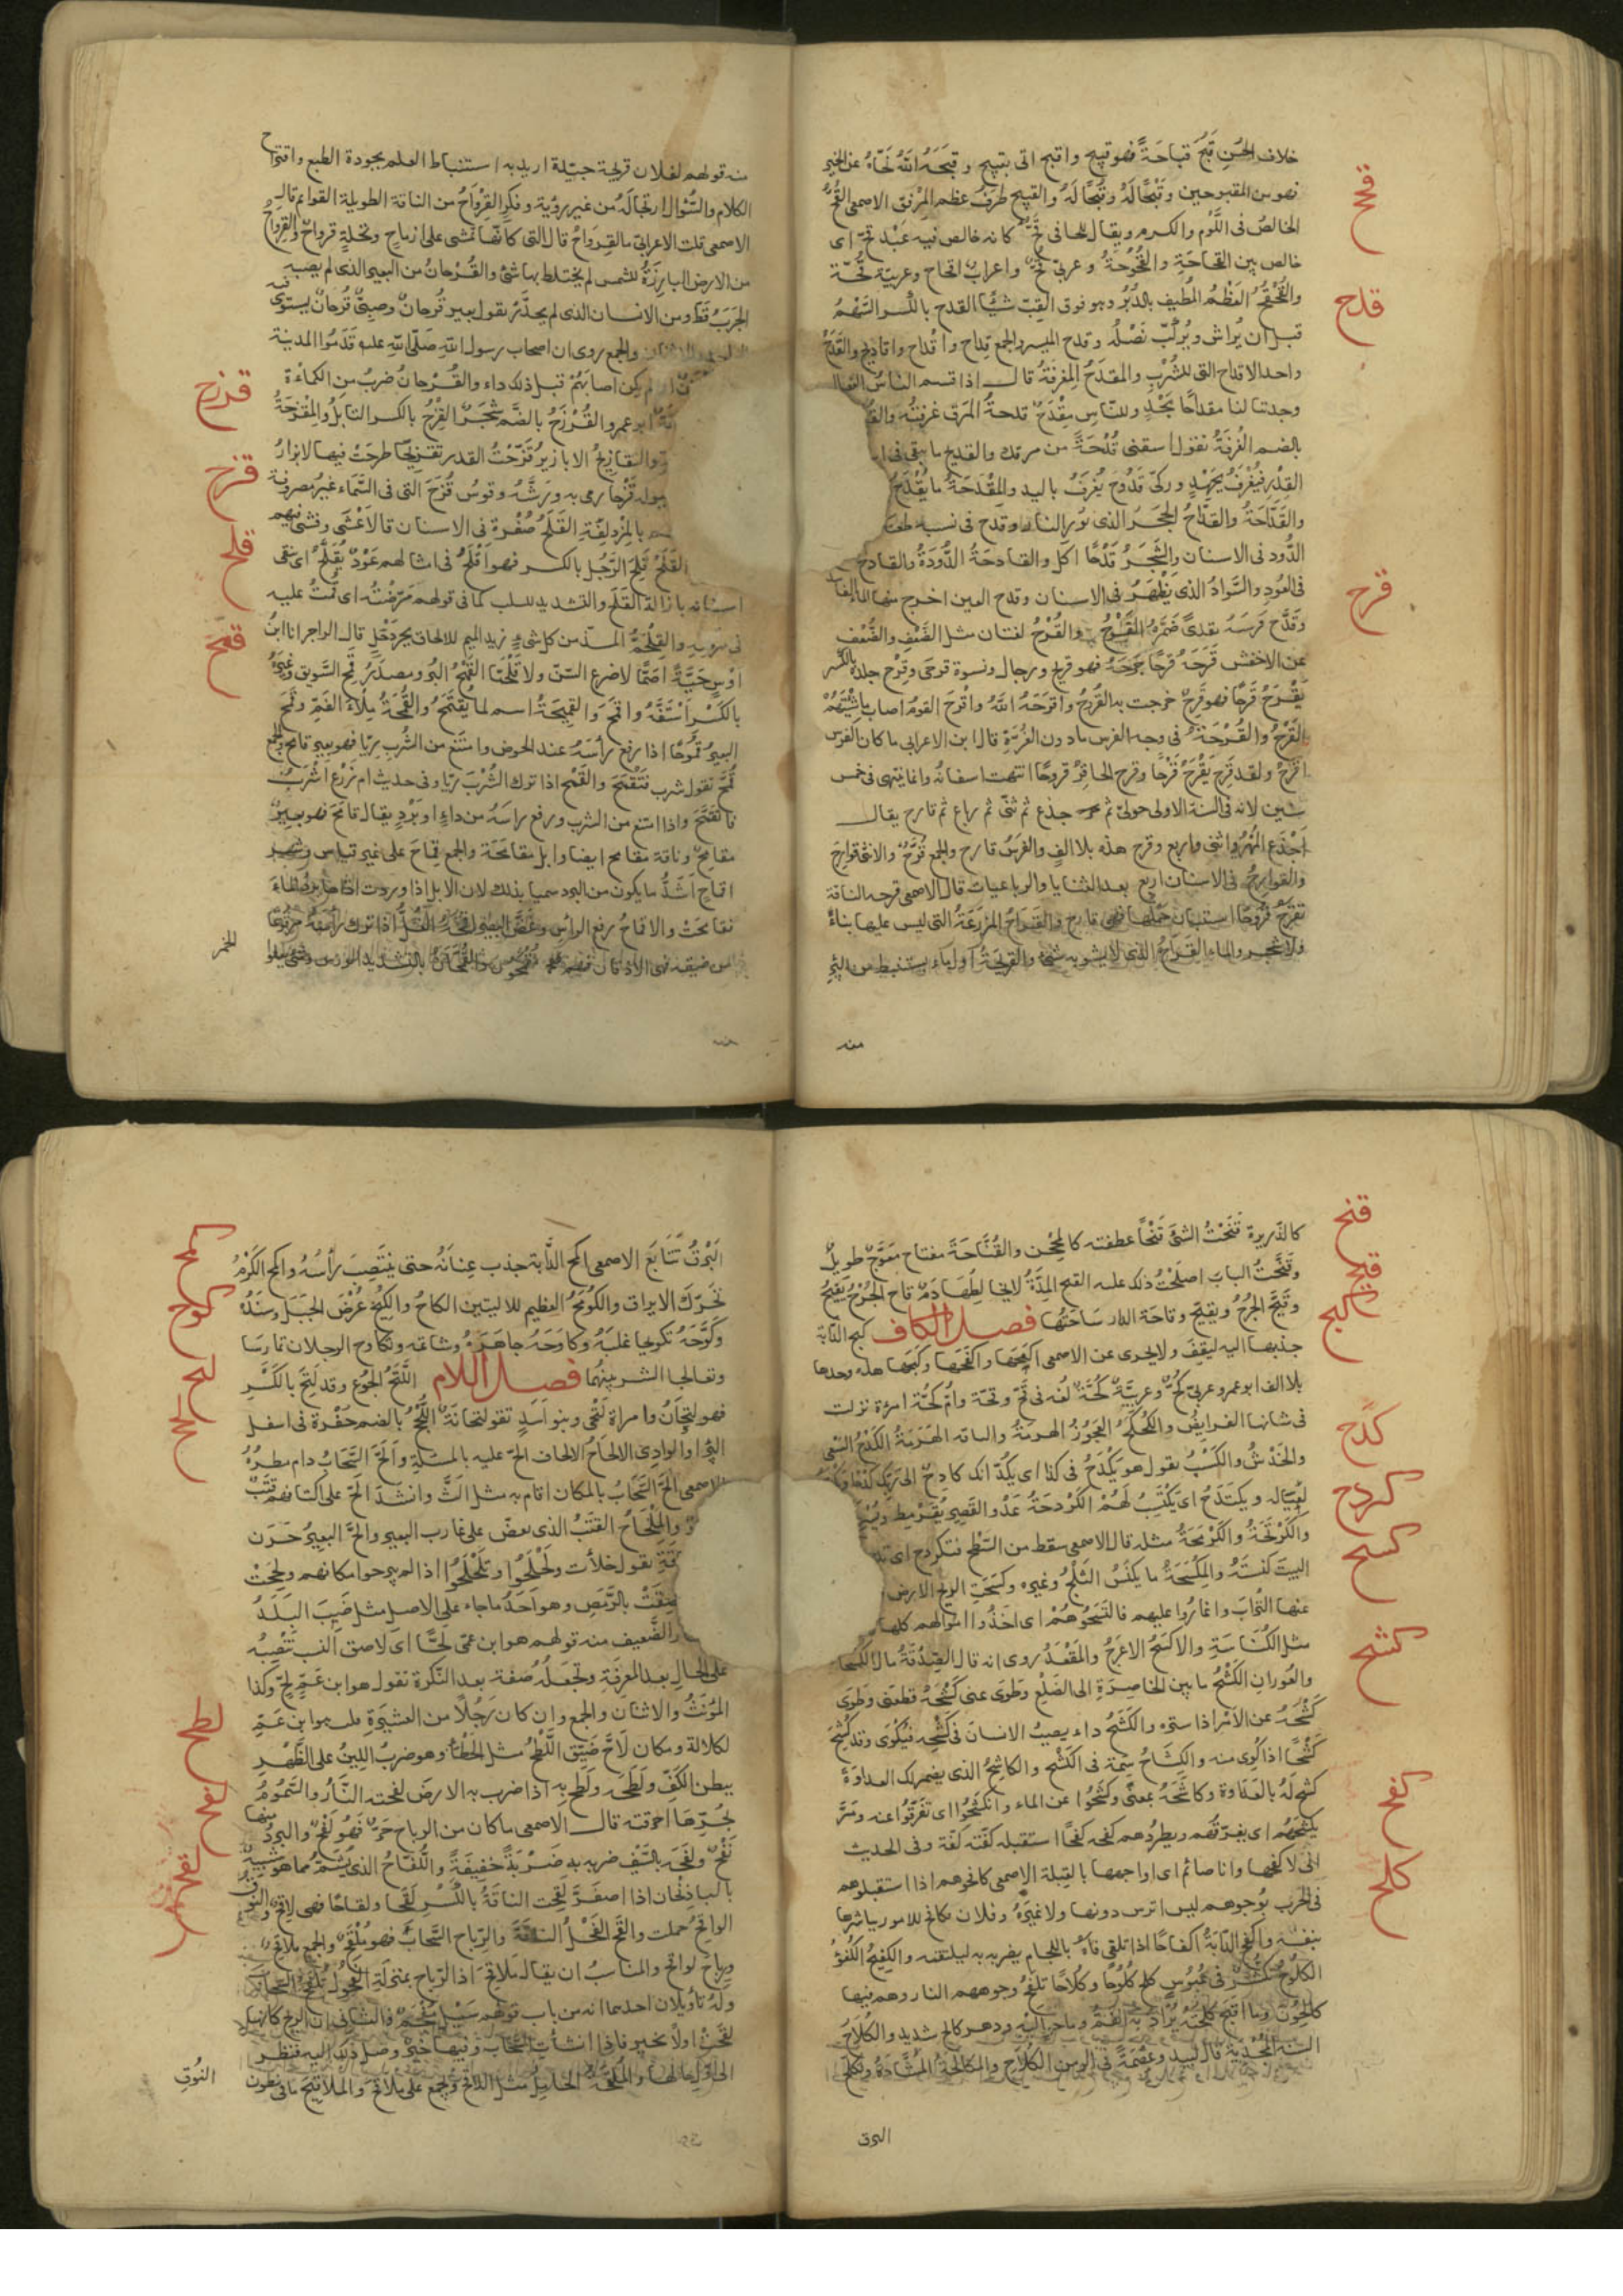 خلاف الحُسن قَبُحَ قباحَةً فهو قبيح واقبح اتى بقبيح وقبَحَهُ اللهُ نَحَّاهُ عن الخير
قحح
فهو من المقبوحين وقُبْحًا لَهُ وقَبْحًا لَهُ والقبيح طرفُ عظم المِرْفق الاصمعى القُحُّ
الخالصُ فى اللَّوُم والكرم ويقال للجافى قُحٌّ كانه خالص فيه عَبْد قحّ اى
خالص بين القحاحَةِ والقُحُوحَةُ وعربىّ قحٌّ واعرابٌ اقحاح وعربيّة قُحّة
قدح
والقُحْقُحُ العَظْمُ المُطيف بالدُّبُرِ وهو فوق القِبّ شيئا القدح بالكسر السَّهْمُ
قبل ان يُراش ويُركّب نَصْلُه وقدح الميسر والجمع قِداح واقْداح واقاديح والقَدَحُ
واحد الاقداح التى للشُّرْبِ والمِقدَحُ المِغرفَةُ قال اذا قسم الناسُ
وجدتنا لنا مقداحًا بَحْدٍ وللنّاسِ مِقْدَحٌ قدحةُ المَرق غرفتُه
بالضم الغُرفَةُ تقول اسقنى قُدْحَةً من مرقك والقديح ما يبقى فى
القِدْرِ فيُغْرَفُ بجَهْدٍ وركىّ قَدُوحٌ يُغرَفُ باليد والمِقْدَحَةُ ما يُقْدَحُ
والقَدَّاحَةُ والقَدّاحُ الحجَرُ الذى يُورى النار وقدح فى نسبه طعن
الدُّود فى الاسنان والشَّجَرِ قَدْحًا اكل والقادحَةُ الدُّودَةُ والقادح
قرح
فى العُودِ والسَّوادُ الذى يَظْهَرُ فى الاسنان وقدح العين اخرج منها
وقَدَّحَ فَرَسَهُ تقديحًا ضَمَّرَهُ القَرْحُ والقُرْحُ لغتان مثل الضَّعْفِ والضُّعْفِ
عن الاخفش قَرَحَهُ قَرحًا جَرَحَهُ فهو قريح ورجال ونسوة قرحَى وقَرِحَ جلده بالكسر
يَقْرَحُ قَرَحًا فهو قَرِحٌ خرجت به القُروحُ واقرَحَهُ اللهُ واقْرَحَ القومُ اصاب ماشِيَتَهُمْ
القَرْحُ والقُرْحَةُ فى وجه الفرس ما دون الغُرَّةِ قال ابن الاعرابى ما كان الفرس
اقْرَحَ ولقد قَرِحَ يَقْرَحُ قَرَحًا وقرح الحافِرُ قُروحًا انتهت اسنانُه وانما ينتهى فى خمس
سنين لانه فى السنة الاولى حولىّ ثم جذع ثم ثنىّ ثم رباع ثم قارح يقال
اجْذَع المُهْرُ واثنى واربع وقرح هذه بلا الفٍ والفَرَسُ قارح والجمع قُرَّحٌ والانثى قوارِحُ
والقوارِحُ فى الاسنان اربع بعد الثنايا والرباعيات قال الاصمعى قرحت الناقة
تقرَحُ قُرُوحًا استبان حَمْلُها فهى قارح والقَرَاحُ المزرَعَةُ التى ليس عليها بناءٌ
ولا شجر والماء القَرَاحُ الذى لا يشوبه شىءٌ والقريحَةُ اول ماء يستنبط من البئر
منه
منه قولهم لفلان قريحة جيّدة اريد به استنباط العلم بجودة الطبع واقتراح
الكلام والسُّؤال ارتجالُه من غير رؤية وفكر القِرْوَاحُ من الناقة الطويلة القوائم قال
الاصمعى قلت لاعرابىّ ما القِرواحُ قال التى كانّها تمشى على ارماح ونخلةٍ قرواحٌ والقِرواحُ
من الارض البارزَةُ للشمس لم يختلط بها شئ والقُرْحانُ من البعير الذى لم يصبه
الجَرَبُ قَطُّ ومن الانسان الذى لم يجدَّرْ تقول بعير قُرحانٌ وصبىٌّ قُرحانٌ يستوى فيه
والجمع روى ان اصحاب رسول اللهِ صَلّى اللهِ عليه قَدَمُوا المدينة
لم يكن اصابَهُمْ قبل ذلك داء والقُرْحانُ ضربٌ مِن الكمأة
قرزح
ابو عمرو القُرْزُحُ بالضَّم شجَرٌ القِزْحُ بالكسر التابَلُ والمِقْزحَةُ
قزح
والتقازيحُ الابازيرُ قَزَّحْتُ القدر تقزيحًا طرحَتْ فيها الابزارُ
ببوله قَزْحًا رمى به ورَشَّهُ وقوسُ قُزَحَ التى فى السَّماء غيرُ مصروفة
قلح
بالمزدلفَةِ القَلَحُ صُفْرة فى الاسنان قال الاعْشَى وفشى فيهم
القَلَحُ قَلِحَ الرَّجُل بالكسر فهو اَقْلَحُ فى امثالهم عَوْدٌ يُقَلَّحُ اى ينقى
اسنانه بازالة القَلَح والتشديد للسلب كما فى قولهم مَرّضْتُه اى قُمْتُ عليه
قمح
فى مرضِهِ والقِلْحَمُّ المسنّ من كل شئ زيد الميم للالحاق بجِرْدَحْلٍ قال الراجز انا ابنُ
اوْسٍ حَيَّةً اصَمَّا لا ضرع السّنّ ولا قِلْحَمّا القَمْحُ البُر ومصدَرُ قمح السَّويق وغيرهُ
بالكَسْرِ اسْتَفَّهُ واقتمَحَ والقَمِيحَةُ اسم لما يُقْتَمَحُ والقُمْحَةُ مِلأُ الفَمِ وقمح
البعيرُ قُمُوحًا اذا رفع رأسَهُ عند الحوض وامتنع من الشُّرب ريّا فهو بعير قامح والجمع
قُمَّحٌ تقول شرب فتَقَمَّحَ وانقمح اذا ترك الشُّرْبَ ريّا وفى حديث ام زَرْع اشْرَبُ
فاتقَمَّحُ واذا امتنع من الشرب ورفع راسَهُ من داءٍ او بَرْدٍ يقال قامَحَ فهو بعيرٌ
مقامِحٌ وناقة مقامح ايضا وابل مقامَحَة والجمع قِماحَ على غير قياس وشهر
اقماحٍ اشَدُّ ما يكون من البرد سميا بذلك لان الابل اذا وردت
تقامحت والاقماحُ رفع الراس وغضُّ البصر
للخمر
فهم مُقمحُون والقُمَّحانُ بالتشديد الورس وشئ يعلو
قنح
كالذّريرة قَنَحْتُ الشئَ قَنْحًا عطفته كالمِحْجَن والقُنَّاحَةُ مفتاح معوَّجٌ طويلٌ
قيح
وقَنَّحْتُ البابَ اصلَحْتُ ذلك عليه القيح المِدَّةُ لا يخالِطُها دَمٌ قاح الجُرْحُ يَقِيحُ
كبح
وقَيَّحَ الجرُحُ وتقيّح وقاحَة الدار سَاحَتُها فصل الكاف كبح الدّابّة
جذبها اليه ليقِفَ ولا يجرى عن الاصمعى اكْمَحَها واكْفَحَها وكبَحَها هذه وحدها
بلا الف ابو عمرو عربىّ كُحٌّ وعربيَّة كُحَّةٌ لغة فى قُحٍّ وقحّة وامُّ كُحَّة امرأة نزلت
كدح
فى شانها الفرايضُ والكُحْكُحُ العَجوزُ الهرمةُ والناقة الهَرِمَةُ الكَدْحُ السَّعى
والخَدْشُ والكَسْبُ تقول هو يَكْدَحُ فى كذا اى يكُدُّ انك كادحٌ الى رَبِّك كدْحًا
كردح
لِعِيَاله ويكتَدِحُ اى يَكْتَسِبُ لَهُمْ الكَرْدَحَةُ عَدْو القَصِيرِ يُقَرْمِط
والكَرْتَحَةُ والكَرْمَحَةُ مثله قال الاصمعى سقط من السَّطح فتكردح اى
كسح
البيتَ كَنَسَهُ والمِكْسَحَةُ ما يكنَسُ الثَلْجُ وغيره وكسَحَتِ الريح الارض
عنها التُّرابَ واغارُوا عليهم فاكْتَسَحُوهُمْ اى اخَذُوا اموالهم كلها
مثل الكُنَاسَةِ والاكسَحُ الاعْرَجُ والمُقْعَدُ روى انه قال الصَدَقَةُ مال الكُسْحَانِ
كشح
والعُورانِ الكَشْحُ ما بين الخاصِرَةِ الى الضِلَعِ وطَوى عنى كَشْحَهُ قطعنى وطَوَى
كَشْحَهُ عن الاَمْرِ اذا ستره والكَشَحُ داء يصيبُ الانسانَ فى كَشْحِهِ فيُكْوَى وقد كُشِحَ
كَشْحًا اذا كُوى منه والكِشَاحُ سِمَة فى الكَشْح والكاشِحُ الذى يضمر لك العداوَةَ
كفح
كشح لَهُ بالعَدَاوة وكاشَحَهُ بمعنًى وكشَحُوا عن الماء وانكشَحُوا اى تفرَّقوا عنه ومَرَّ
يكشَحُهُم اى يفرّقهُم ويطردُهم كفحه كفْحًا استقبله كفّته كفّة وفى الحديث
كلح
انى لاكفحها وانا صائم اى اواجهها بالقبلة الاصمعى كافحوهم اذا استقبلوهم
فى الحَرْب بوُجُوهِهم ليس ترس دونها ولا غيرهُ وفلان مكافح للامور يباشرها
بنفسه واكفح الدّابَةُ اكفاحًا اذا تلقى فاهُ باللّجام يضربه به ليلتقمه والكفيحُ الكُفْؤُ
الكُلُوحُ تكَشُّر فى عُبُوسٍ كلح كُلُوحًا وكُلاحًا تَلفَحُ وجوههم النار وهم فيها
كالحُونَ وما اقبح كَلْحَتَهُ يُرادُ به الفمُ وما حواليْهِ ودهر كالح شديد والكُلاحُ
السنة المُجْدِبَةُ قال لبيد وعِصْمَةً فى الزمن الكُلاحِ والمُكالحَةُ المُشَادَّةُ وتكلَّحَ
البرق
كمح
البَرْقُ تَتَابَعَ الاصمعى اكمح الدَّابة جذب عِنَانَهُ حتى ينتَصِبَ رأسُهُ واكمح الكَرْمُ
كوح
تحَرَّك الايراق والكَوْمَحُ العظيم للاليتين الكاحُ والكِيحُ عُرْضُ الجَبَل وسَنَدُهُ
وكَوَّحَهُ تكويحا غلَبَهُ وكاوَحَهُ جاهَرَهُ وشاتمه وتكاوح الرجلان تمارسا
لتح
وتعالجا الشر بينهما فصل اللام اللَّتَحُ الجُوعُ وقد لَتِحَ بالكَسْر
لحح
فهو لتحانُ وامراة لَتْحى وبنو اسَدٍ تقول لتحانَةٌ اللُّحْجُ بالضم حَفْرة فى اسفل
البئر او الوادِى الالحاحُ الالحاف الحّ عليه بالمسئلةِ والَحَّ السَّحابُ دام مطرُهُ
الاصمعى الَحَّ السَّحَابُ بالمكان اقام به مثل الثَّ وانشد الَحَّ على اكتافهم قتَبٌ
والمِلْحَاحُ القتَبُ الذى يعضّ على غارب البعير والَحَّ البعيرُ حَرَن
تقول خلأت ولحْلَحُوا وتَلَحْلَحُوا اذا لم يبرحوا مكانهم ولَحِحَتْ
لصِقَتْ بالرَّمَصِ وهو اَحَدُ ما جاء على الاصل مثل ضَبِبَ البَلَدُ
والتَّضعيف منه قولهم هو ابن عمّى لحًّا اى لاصق النسب تَنْصِبُه
على الحالِ بعد المعرفَةِ وتجعَلُهُ صفة بعد النّكرة تقول هو ابن عَمٍّ لحٍّ وكذا
المُؤنثُ والاثنان والجمع وان كان رَجُلاً من العشيرَةِ قلت هوا بن عَمِّ
لطح
لكلالة ومكان لاحّ ضَيّق اللَّطحُ مثل الحطْأ وهو ضربُ اللينُ على الظَهْرِ
لفح
ببطن الكَفّ ولَطَحَه ولَطَح به اذا ضرب به الارضَ لفحته النَّارُ والسَّمُومُ
بحُرّهَا احرقته قال الاصمعى ما كان من الرياح حَرٌّ فهُو لَفْحٌ والبردُ منها
لقح
نَفْحٌ ولَفَحَه بالسَّيف ضربه به ضَرْبَةً خفيفَةً واللُّفّاحُ الذى يُشَمُّ مما هو شبيهٌ
بالباذنجان اذا اصفَرَّ لقحت الناقَةُ بالكَسْرِ لقَحًا ولَقاحًا فهى لاقِحٌ والنُّوقُ
الواقحُ حملت والقَحَ الفَحْلُ الناقَةَ والرِّياح السَّحابَ فهو مُلْقَحٌ والجمع ملاقح
ورياح لواقح والمناسبُ ان يقال مَلاقح اذ الرّياح بمنزلَةِ الفُحولِ تُلْقِحُ السَّحاب
ولهُ تاويلان احدهما انه من باب قولهم سَيْلٌ مُفْعَم والثانى ان الريح كانها
لقحت اولاً بخير فاذا انشأت السَّحابَ وفيها خيرٌ وصل ذلك اليه فنظر
النُوقِ
الى اول حالها والمُلقَحَةُ الحَامِلُ مثل اللاقح ويجمع على مَلاقح والمَلاقيح ما فى بطون